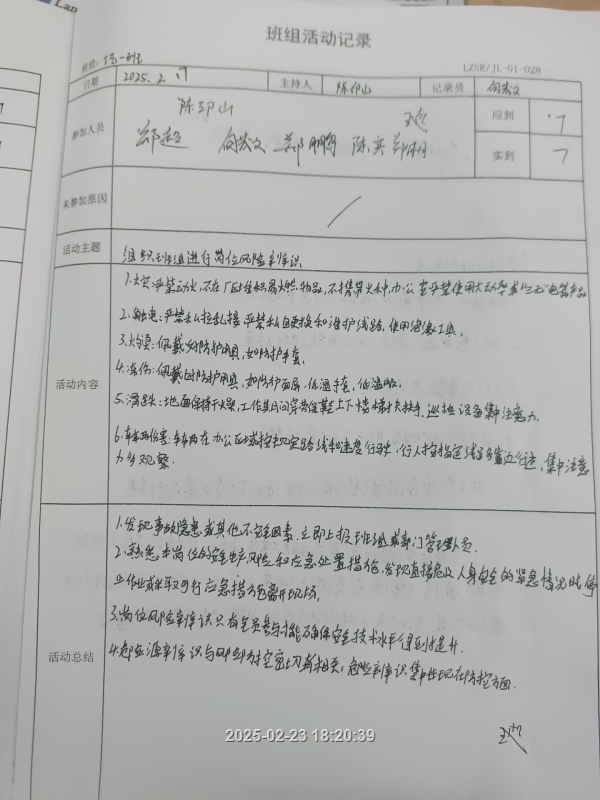 班组活动记录
班组: 一班
LZSR/JL-01-028
日期 2025.2. 主持人 陈邓山 记录员 向发文
参加人员 陈邓山
应到 7
郑超 向发文 郑鹏 陈实 郑相
实到 7
未参加原因 /
活动主题 组织班组进行岗位风险辨识
活动内容
1.火灾:严禁动火,不在厂区堆积易燃物品,不携带火种,办公室严禁使用大功率或"三无"电器产品
2.触电:严禁私拉乱接,严禁私自更换和维护线路,使用绝缘工具.
3.灼烫:佩戴好防护用具,如防护手套.
4.冻伤:佩戴好防护用具,如防护面屏,低温手套,低温服.
5.滑跌:地面保持干燥,工作期间穿劳保鞋,上下楼梯扶扶手,巡检设备集中注意力.
6.车辆伤害:车辆在办公区域按规定路线和速度行驶,行人按指定线路靠边行进,集中注意
力多观察.
活动总结
1.发现事故隐患或其他不安全因素,立即上报班组或部门管理人员.
2.熟悉本岗位的安全生产风险和应急处置措施,发现直接危及人身安全的紧急情况时停
止作业或采取可行应急措施后离开现场.
3.岗位风险辨识只有全员参与才能确保安全技术水平得到提升.
4.危险源辨识与风险防控密切相关,危险辨识集中体现在防控方面.
2025-02-23 18:20:39